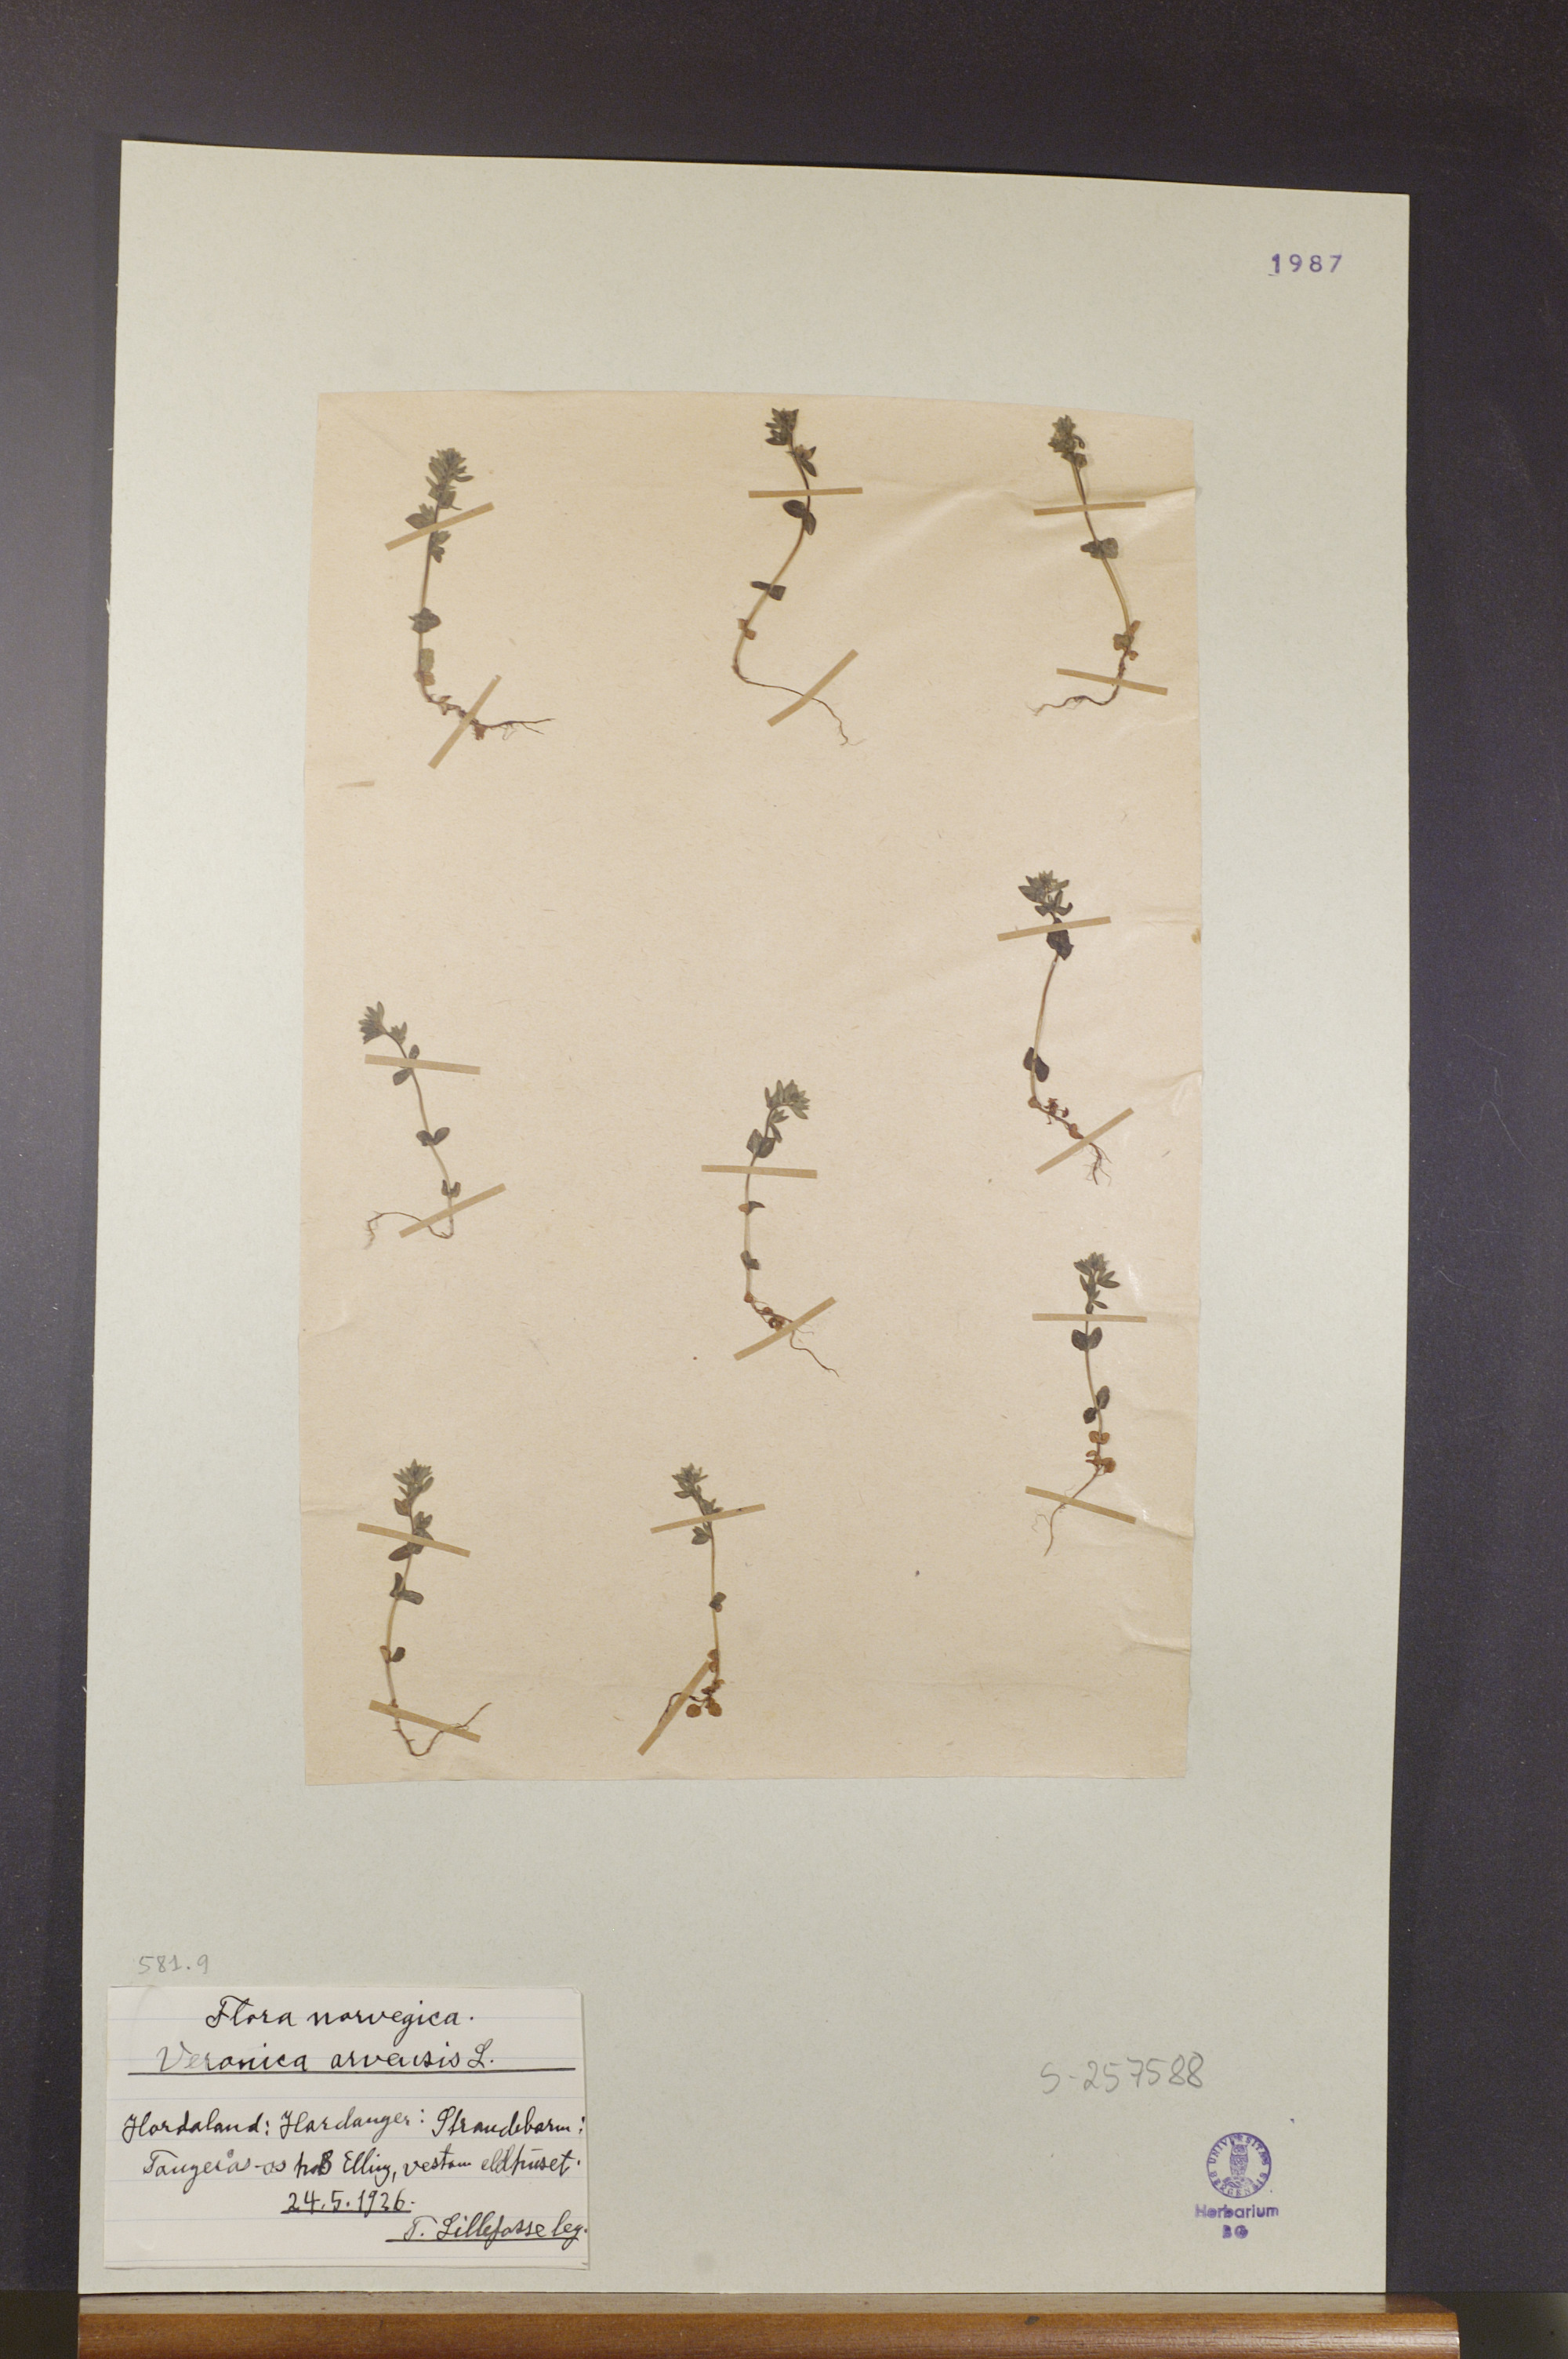 1987
581.9
Flora norvegica.
Veronica arvensis L.
Hordaland: Hardanger: Strandebarm:
Tangerås-os hos Elling, vestom eldhuset.
24.5.1926.
T. Lillefosse leg.
S-257588
UNIVERSITAS BERGENSIS
Herbarium
BG